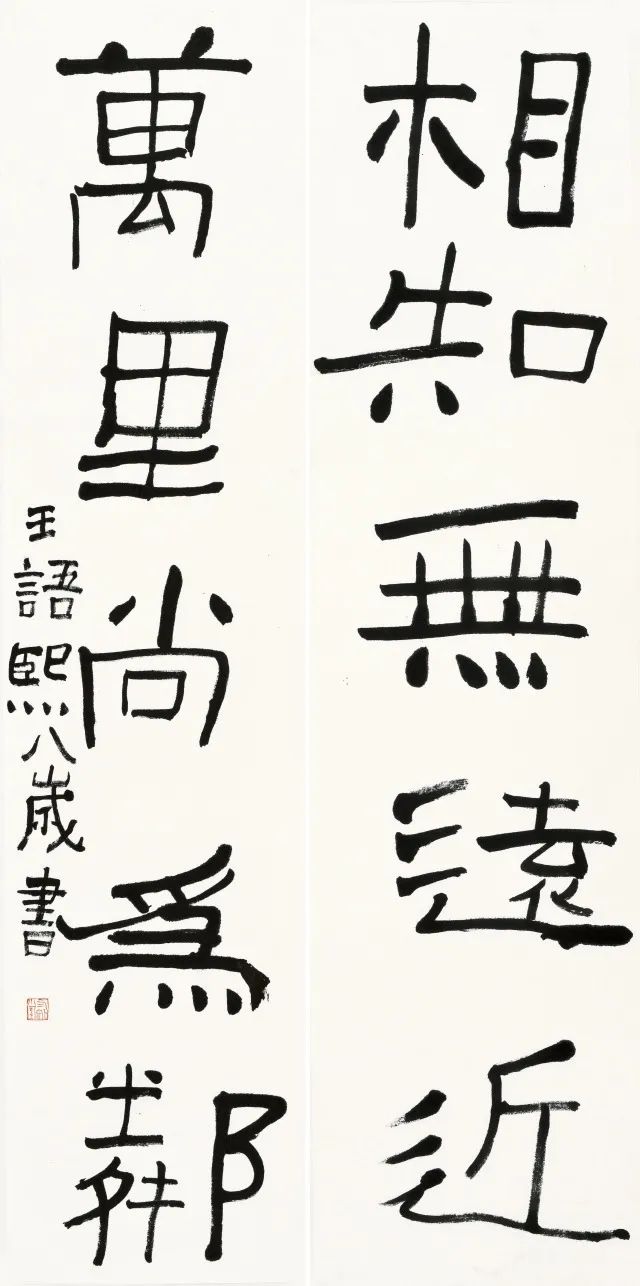 相知無遠近
萬里尚為鄰
王語熙八歲書